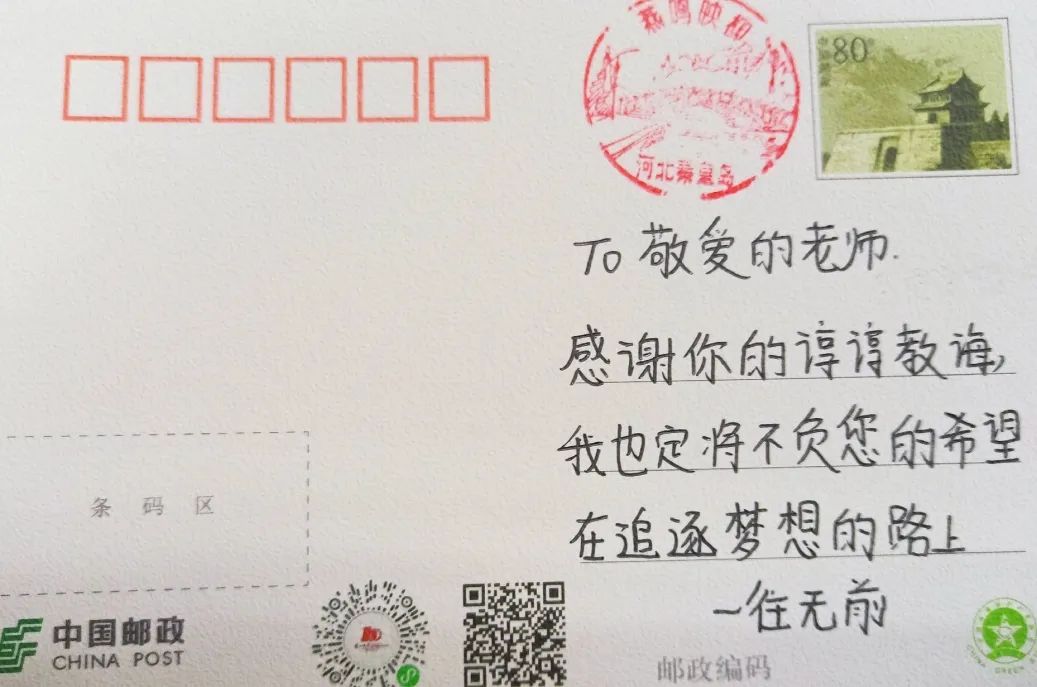 燕鸣映相
河北秦皇岛
80
To 敬爱的老师.
感谢你的谆谆教诲,
我也定将不负您的希望
在追逐梦想的路上
一往无前
条码区
中国邮政
CHINA POST
邮政编码